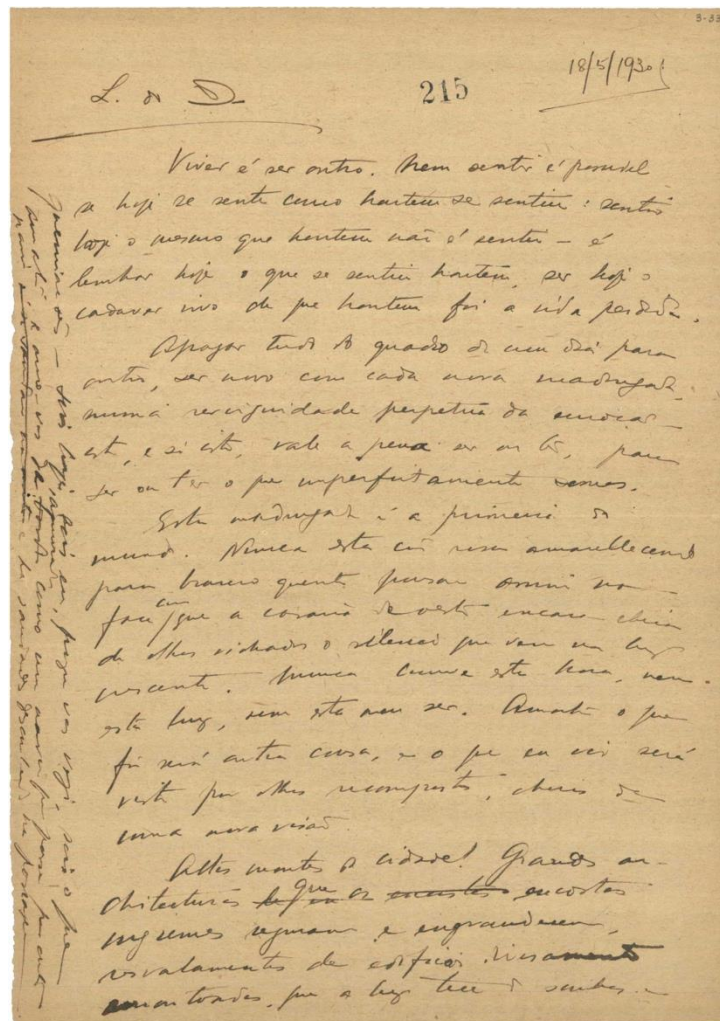 3-33
18/5/1930
L. do D.
215
Viver é ser outro. Nem sentir é possivel
se hoje se sente como hontem se sentiu: sentir
hoje o mesmo que hontem não é sentir – é
lembrar hoje o que se sentiu hontem, ser hoje o
cadaver vivo do que hontem foi a vida perdida.
Apagar tudo do quadro de um dia para
outro, ser novo com cada nova madrugada,
numa revirgindade perpetua da emoção –
isto, e só isto, vale a pena ser ou ter, para
ser ou ter o que imperfeitamente somos.
Esta madrugada é a primeira do
mundo. Nunca esta côr rosa amarellecendo
para branco quente pousou assim na
face com que a casaria de oeste encara cheia
de olhos vidrados o silencio que vem na luz
crescente. Nunca houve esta hora, nem
esta luz, nem este meu ser. Amanhã o que
fôr será outra cousa, e o que eu vir será
visto por olhos recompostos, cheios de
uma nova visão.
Altos montes da cidade! Grandes ar-
chitecturas que as encostas
ingremes seguram e engrandecem,
resvalamentos de edificios diversamente
amontoados, que a luz tece de sombras e
queimações – sois hoje, sois eu, porque vos vejo, sois o que
amanhã
e amo-vos da amurada como um navio que passa por outro
navio e ha saudades desconhecidas na passagem